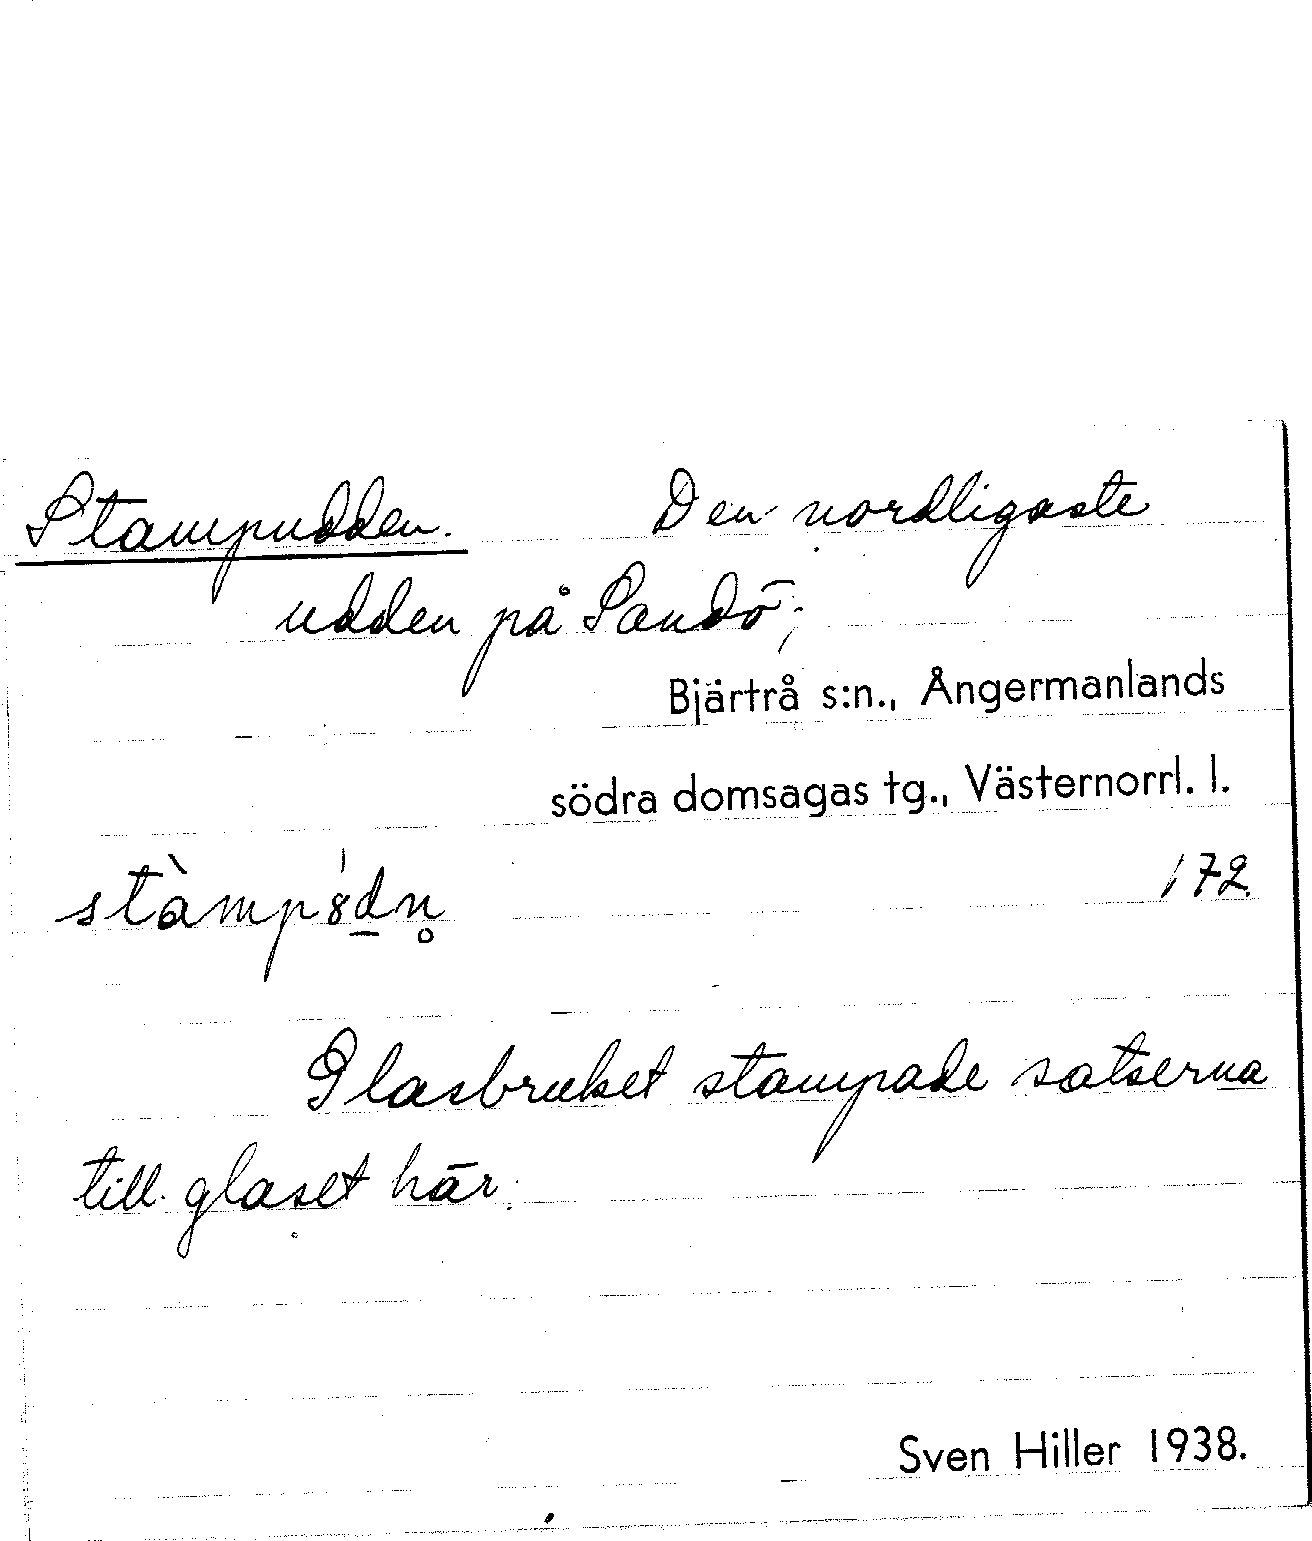 Stampudden. Den nordligaste
udden på Sandö;
Bjärtrå s:n., Ångermanlands
södra domsagas tg., Västernorrl. l.
stàmp8́d̲n̥ 172.
Glasbruket stampade satserna
till glaset här.
Sven Hiller 1938.